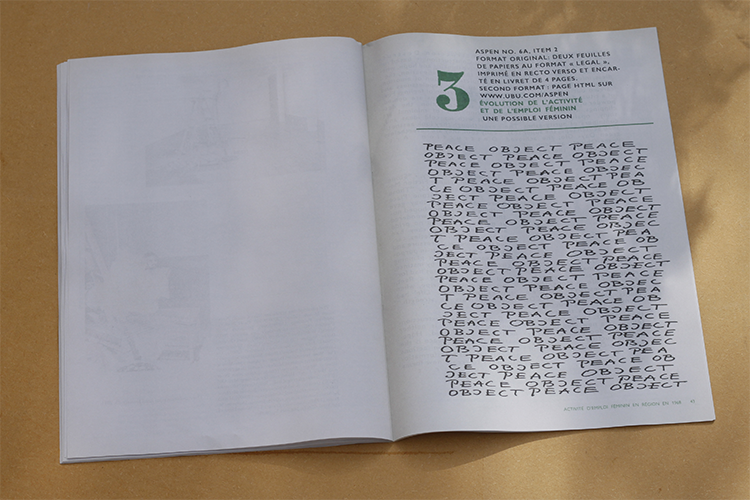 3
ASPEN NO. 6A, ITEM 2
FORMAT ORIGINAL: DEUX FEUILLES
DE PAPIERS AU FORMAT « LEGAL »,
IMPRIMÉ EN RECTO VERSO ET ENCAR-
TÉ EN LIVRET DE 4 PAGES.
SECOND FORMAT : PAGE HTML SUR
WWW.UBU.COM/ASPEN
ÉVOLUTION DE L'ACTIVITÉ
ET DE L'EMPLOI FÉMININ
UNE POSSIBLE VERSION
PEACE OBJECT PEACE
OBJECT PEACE OBJECT
PEACE OBJECT PEACE
OBJECT PEACE OBJEC
T PEACE OBJECT PEA
CE OBJECT PEACE OB
JECT PEACE OBJECT
PEACE OBJECT PEACE
OBJECT PEACE OBJECT
PEACE OBJECT PEACE
OBJECT PEACE OBJEC
T PEACE OBJECT PEA
CE OBJECT PEACE OB
JECT PEACE OBJECT
PEACE OBJECT PEACE
OBJECT PEACE OBJECT
PEACE OBJECT PEACE
OBJECT PEACE OBJEC
T PEACE OBJECT PEA
CE OBJECT PEACE OB
JECT PEACE OBJECT
PEACE OBJECT PEACE
OBJECT PEACE OBJECT
PEACE OBJECT PEACE
OBJECT PEACE OBJEC
T PEACE OBJECT PEA
CE OBJECT PEACE OB
JECT PEACE OBJECT
PEACE OBJECT PEACE
OBJECT PEACE OBJECT
ACTIVITÉ D'EMPLOI FÉMININ EN RÉGION EN